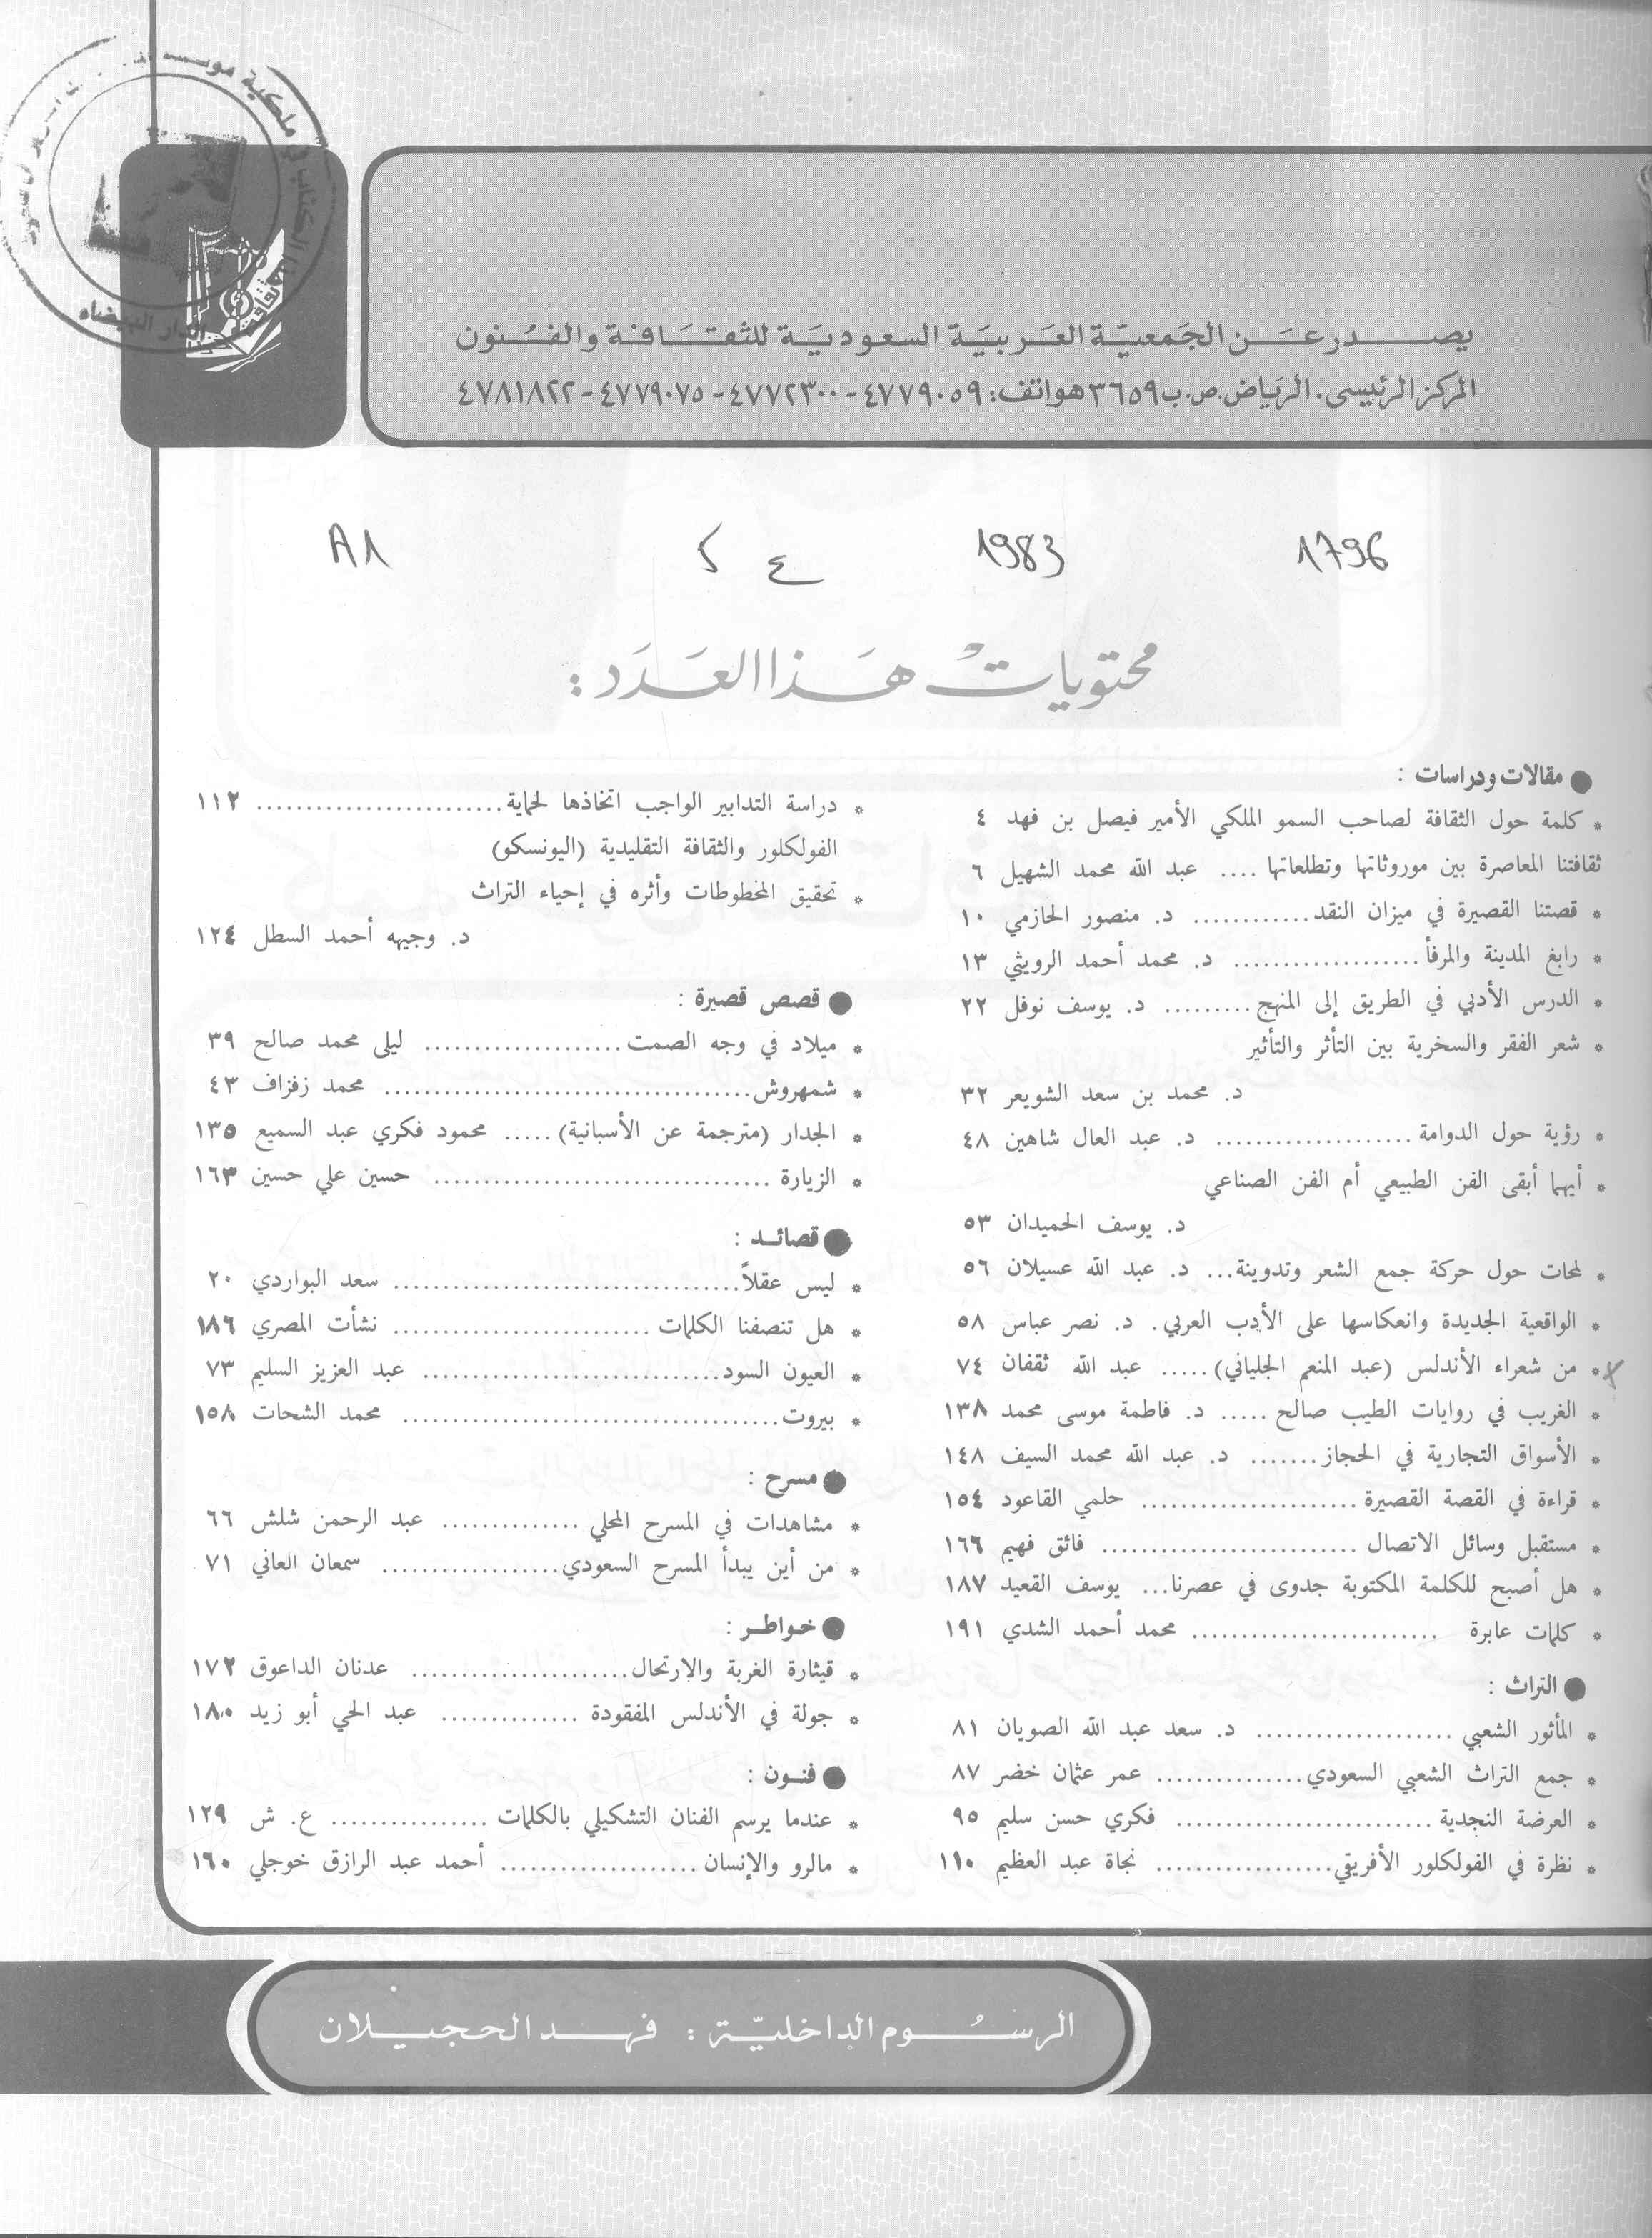 يصدر عن الجمعية العربية السعودية للثقافة والفنون
المركز الرئيسى . الرياض . ص.ب ٣٦٥٩ هواتف : ٤٧٧٩٠٥٩ - ٤٧٧٢٣٠٠ - ٤٧٧٩٠٧٥ - ٤٧٨١٨٢٢
1796 1983 ع 5 A1
محتويات هذا العدد :
● مقالات ودراسات :
* كلمة حول الثقافة لصاحب السمو الملكي الأمير فيصل بن فهد ٤
ثقافتنا المعاصرة بين موروثاتها وتطلعاتها .... عبد الله محمد الشهيل ٦
* قصتنا القصيرة في ميزان النقد............ د. منصور الحازمي ١٠
* رابغ المدينة والمرفأ................... د. محمد أحمد الرويثي ١٣
* الدرس الأدبي في الطريق إلى المنهج......... د. يوسف نوفل ٢٢
* شعر الفقر والسخرية بين التأثر والتأثير
د. محمد بن سعد الشويعر ٣٢
* رؤية حول الدوامة .................... د. عبد العال شاهين ٤٨
* أيهما أبقى الفن الطبيعي أم الفن الصناعي
د. يوسف الحميدان ٥٣
* لمحات حول حركة جمع الشعر وتدوينة... د. عبد الله عسيلان ٥٦
* الواقعية الجديدة وانعكاسها على الأدب العربي. د. نصر عباس ٥٨
* من شعراء الأندلس (عبد المنعم الجلياني)..... عبد الله ثقفان ٧٤
* الغريب في روايات الطيب صالح ..... د. فاطمة موسى محمد ١٣٨
* الأسواق التجارية في الحجاز....... د. عبد الله محمد السيف ١٤٨
* قراءة في القصة القصيرة ...................... حلمي القاعود ١٥٤
* مستقبل وسائل الاتصال .......................... فائق فهيم ١٦٦
* هل أصبح للكلمة المكتوبة جدوى في عصرنا... يوسف القعيد ١٨٧
* كلمات عابرة ......................... محمد أحمد الشدي ١٩١
● التراث :
* المأثور الشعبي .................... د. سعد عبد الله الصويان ٨١
* جمع التراث الشعبي السعودي............... عمر عثمان خضر ٨٧
* العرضة النجدية .......................... فكري حسن سليم ٩٥
* نظرة في الفولكلور الأفريقي.................. نجاة عبد العظيم ١١٠
* دراسة التدابير الواجب اتخاذها لحماية......................... ١١٢
الفولكلور والثقافة التقليدية (اليونسكو)
* تحقيق المخطوطات وأثره في إحياء التراث
د. وجيهه أحمد السطل ١٢٤
● قصص قصيرة :
* ميلاد في وجه الصمت.................... ليلى محمد صالح ٣٩
* شمهروش..................................... محمد زفزاف ٤٣
* الجدار (مترجمة عن الأسبانية) ..... محمود فكري عبد السميع ١٣٥
* الزيارة .................................. حسين علي حسين ١٦٣
● قصائد :
* ليس عقلاً................................... سعد البواردي ٢٠
* هل تنصفنا الكلمات .......................... نشأت المصري ١٨٦
* العيون السود.............................. عبد العزيز السليم ٧٣
* بيروت...................................... محمد الشحات ١٥٨
● مسرح :
* مشاهدات في المسرح المحلي .............. عبد الرحمن شلش ٦٦
* من أين يبدأ المسرح السعودي.................. سمعان العاني ٧١
● خواطر :
* قيثارة الغربة والإرتحال...................... عدنان الداعوق ١٧٢
* جولة في الأندلس المفقودة .............. عبد الحي أبو زيد ١٨٠
● فنون :
* عندما يرسم الفنان التشكيلي بالكلمات ................ ع. ش ١٢٩
* مالرو والإنسان .................... أحمد عبد الرازق خوجلي ١٦٠
الرسوم الداخلية : فهد الحجيلان